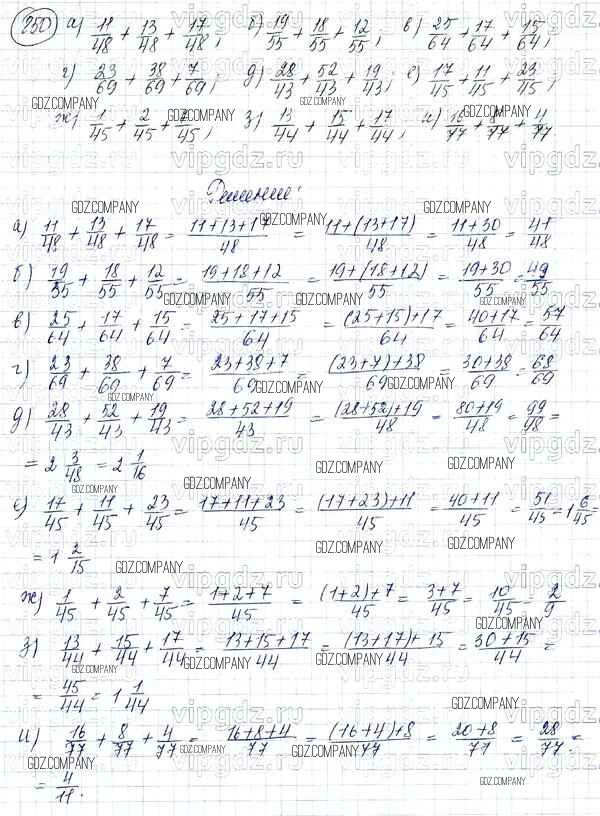 250) а) 11/48 + 13/48 + 17/48; б) 19/55 + 18/55 + 12/55; в) 25/64 + 17/64 + 15/64;
г) 23/69 + 38/69 + 7/69; д) 28/43 + 52/43 + 19/43; е) 17/45 + 11/45 + 23/45;
ж) 1/45 + 2/45 + 7/45; з) 13/44 + 15/44 + 17/44; и) 16/77 + 8/77 + 4/77
Решение:
а) 11/48 + 13/48 + 17/48 = (11+13+17)/48 = (11+(13+17))/48 = (11+30)/48 = 41/48
б) 19/55 + 18/55 + 12/55 = (19+18+12)/55 = (19+(18+12))/55 = (19+30)/55 = 49/55
в) 25/64 + 17/64 + 15/64 = (25+17+15)/64 = ((25+15)+17)/64 = (40+17)/64 = 57/64
г) 23/69 + 38/69 + 7/69 = (23+38+7)/69 = ((23+7)+38)/69 = (30+38)/69 = 68/69
д) 28/43 + 52/43 + 19/43 = (28+52+19)/43 = ((28+52)+19)/48 = (80+19)/48 = 99/48 =
= 2 3/48 = 2 1/16
е) 17/45 + 11/45 + 23/45 = (17+11+23)/45 = ((17+23)+11)/45 = (40+11)/45 = 51/45 = 1 6/45 =
= 1 2/15
ж) 1/45 + 2/45 + 7/45 = (1+2+7)/45 = ((1+2)+7)/45 = (3+7)/45 = 10/45 = 2/9
з) 13/44 + 15/44 + 17/44 = (13+15+17)/44 = ((13+17)+15)/44 = (30+15)/44 =
= 45/44 = 1 1/44
и) 16/77 + 8/77 + 4/77 = (16+8+4)/77 = ((16+4)+8)/77 = (20+8)/77 = 28/77 =
= 4/11.